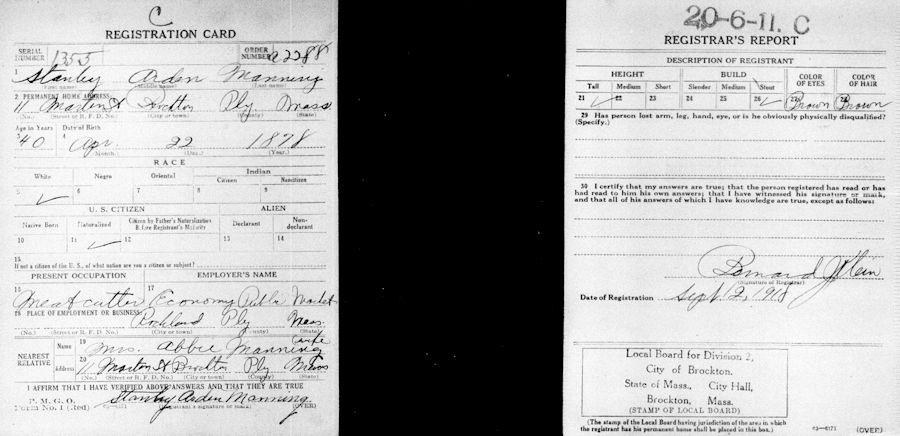 C
REGISTRATION CARD
SERIAL NUMBER 1355 ORDER NUMBER A2288
1 Stanley Arden Manning
(First name) (Middle name) (Last name)
2 PERMANENT HOME ADDRESS:
11 Ply Mass
(No.) (Street or R. F. D. No.) (City or town) (County) (State)
Age in Years Date of Birth
3 40 4 Apr. 22 1878
(Month.) (Day.) (Year.)
RACE
White Negro Oriental Indian
Citizen Noncitizen
5 ✓ 6 7 8 9
U. S. CITIZEN ALIEN
Native Born Naturalized Citizen by Father's Naturalization Before Registrant's Majority Declarant Non-declarant
10 11 ✓ 12 13 14
15
If not a citizen of the U. S., of what nation are you a citizen or subject?
PRESENT OCCUPATION EMPLOYER'S NAME
16 Meat cutter 17 Economy Public Market
18 PLACE OF EMPLOYMENT OR BUSINESS:
Rockland Ply Mass.
(No.) (Street or R. F. D. No.) (City or town) (County) (State)
NEAREST RELATIVE
Name 19 Mrs. Abbie Manning wife
Address 20 11 Ply Mass
(No.) (Street or R. F. D. No.) (City or town) (County) (State)
I AFFIRM THAT I HAVE VERIFIED ABOVE ANSWERS AND THAT THEY ARE TRUE
P. M. G. O.
Form No. 1 (Red) Stanley Arden Manning.
(Registrant's signature or mark) (OVER)
20-6-11. C
REGISTRAR'S REPORT
DESCRIPTION OF REGISTRANT
HEIGHT BUILD COLOR OF EYES COLOR OF HAIR
Tall Medium Short Slender Medium Stout
21 ✓ 22 23 24 25 26 ✓ 27 Brown 28 Brown
29 Has person lost arm, leg, hand, eye, or is he obviously physically disqualified?
(Specify.)
30 I certify that my answers are true; that the person registered has read or has
had read to him his own answers; that I have witnessed his signature or mark,
and that all of his answers of which I have knowledge are true, except as follows:
(Signature of Registrar)
Date of Registration Sept. 12, 1918
Local Board for Division 2,
City of Brockton.
State of Mass., City Hall,
Brockton, Mass.
(STAMP OF LOCAL BOARD)
(The stamp of the Local Board having jurisdiction of the area in which
the registrant has his permanent home shall be placed in this box.)
03-6171 (OVER)